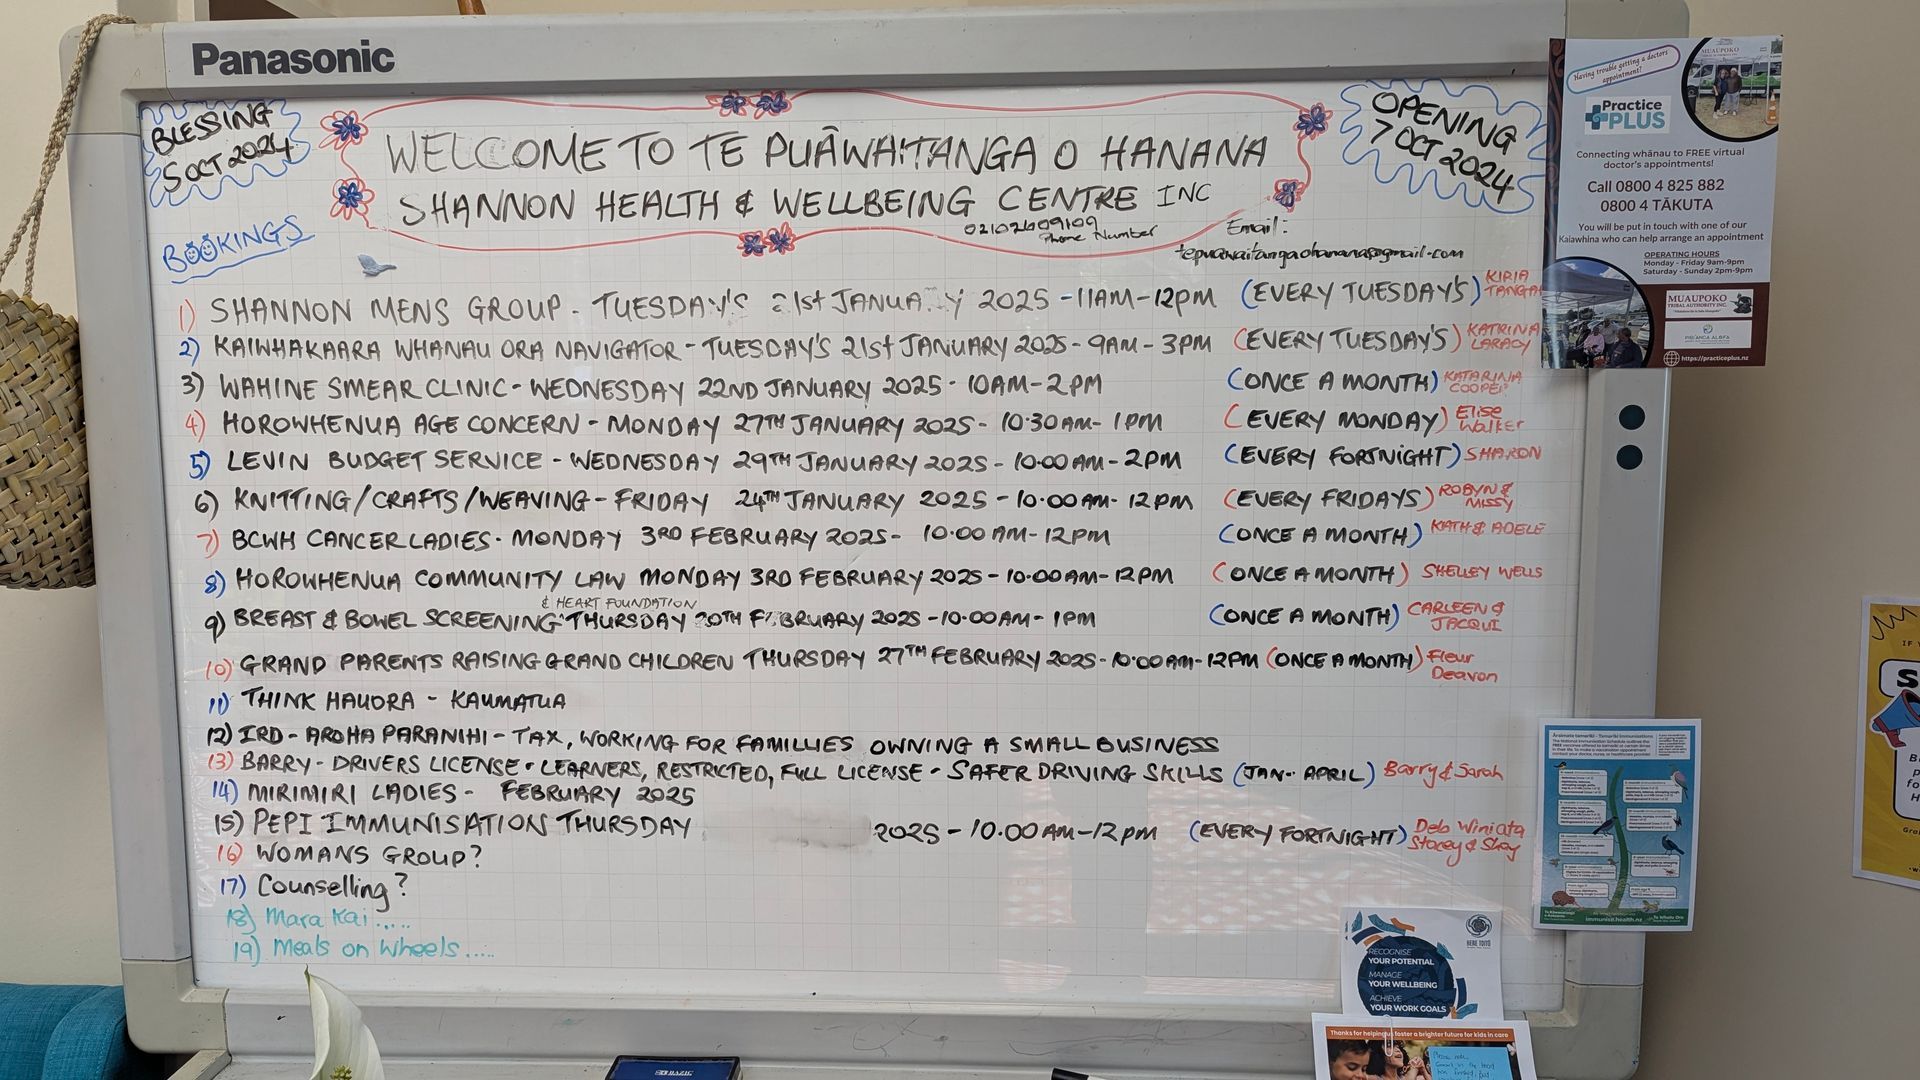 Panasonic
BLESSING
5 OCT 2024
WELCOME TO TE PUĀWAITANGA O HANANA
SHANNON HEALTH & WELLBEING CENTRE INC
02102409109
Phone Number
Email:
tepuawaitangaohanana@gmail.com
OPENING
7 OCT 2024
BOOKINGS
1) SHANNON MENS GROUP - TUESDAY'S 21st JANUARY 2025 - 11AM - 12PM (EVERY TUESDAY'S) KIRIA TANGAH
2) KAIWHAKAARA WHANAU ORA NAVIGATOR - TUESDAY'S 21st JANUARY 2025 - 9AM - 3PM (EVERY TUESDAY'S) KATRINA LARACY
3) WAHINE SMEAR CLINIC - WEDNESDAY 22ND JANUARY 2025 - 10AM - 2PM (ONCE A MONTH) KATARINIA COOPER
4) HOROWHENUA AGE CONCERN - MONDAY 27TH JANUARY 2025 - 10:30AM - 1PM (EVERY MONDAY) Elise Walker
5) LEVIN BUDGET SERVICE - WEDNESDAY 29TH JANUARY 2025 - 10.00AM - 2PM (EVERY FORTNIGHT) SHARON
6) KNITTING/CRAFTS/WEAVING - FRIDAY 24TH JANUARY 2025 - 10.00AM - 12PM (EVERY FRIDAYS) ROBYN & MISSY
7) BCWH CANCER LADIES - MONDAY 3RD FEBRUARY 2025 - 10.00AM - 12PM (ONCE A MONTH) KATH & ADELE
8) HOROWHENUA COMMUNITY LAW MONDAY 3RD FEBRUARY 2025 - 10.00AM - 12PM (ONCE A MONTH) SHELLEY WELLS
& HEART FOUNDATION
9) BREAST & BOWEL SCREENING THURSDAY 20TH FEBRUARY 2025 - 10.00AM - 1PM (ONCE A MONTH) CARLEEN & JACQUI
10) GRAND PARENTS RAISING GRAND CHILDREN THURSDAY 27TH FEBRUARY 2025 - 10.00AM - 12PM (ONCE A MONTH) Fleur Deavon
11) THINK HAUORA - KAUMATUA
12) IRD - AROHA PARANIHI - TAX, WORKING FOR FAMILLIES OWNING A SMALL BUSINESS
13) BARRY - DRIVERS LICENSE - LEARNERS, RESTRICTED, FULL LICENSE - SAFER DRIVING SKILLS (JAN - APRIL) Barry & Sarah
14) MIRIMIRI LADIES - FEBRUARY 2025
15) PEPI IMMUNISATION THURSDAY 2025 - 10.00AM - 12pm (EVERY FORTNIGHT) Deb Winiata Stacey & Shay
16) WOMANS GROUP?
17) Counselling?
18) Mara Kai .....
19) Meals on Wheels.....
Having trouble getting a doctors appointment?
MUAUPOKO
Practice PLUS
Connecting whānau to FREE virtual
doctor's appointments!
Call 0800 4 825 882
0800 4 TĀKUTA
You will be put in touch with one of our
Kaiawhina who can help arrange an appointment
OPERATING HOURS
Monday - Friday 9am-9pm
Saturday - Sunday 2pm-9pm
MUAUPOKO
TRIBAL AUTHORITY INC.
https://practiceplus.nz
immunise.health.nz
RECOGNISE
YOUR POTENTIAL
MANAGE
YOUR WELLBEING
ACHIEVE
YOUR WORK GOALS
HERE TOITŪ
Thanks for helping us foster a brighter future for kids in care